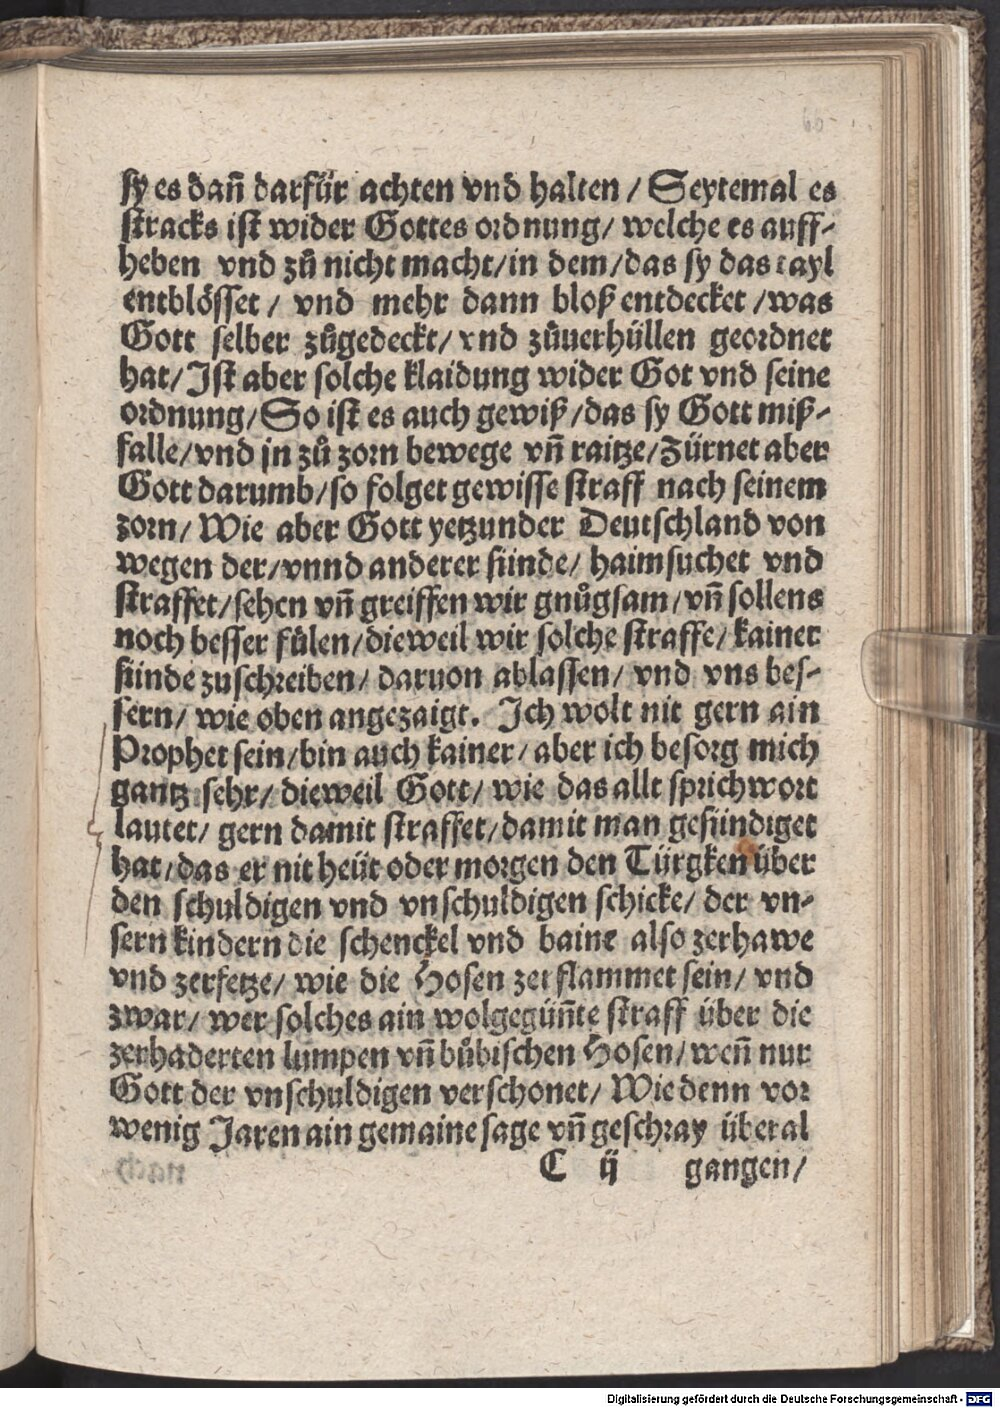 60
sy es dañ darfür achten vnd halten / Seytemal es
stracks ist wider Gottes ordnung / welche es auff-
heben vnd zů nicht macht / in dem / das sy das tayl
entblösset / vnd mehr dann bloß entdecket / was
Gott selber zůgedeckt / vnd zůuerhüllen geordnet
hat / Ist aber solche klaidung wider Got vnd seine
ordnung / So ist es auch gewiß / das sy Gott miß-
falle / vnd jn zů zorn bewege vñ raitze / Zürnet aber
Gott darumb / so folget gewisse straff nach seinem
zorn / Wie aber Gott yetzunder Deutschland von
wegen der / vnnd anderer sünde / haimsuchet vnd
straffet / sehen vñ greiffen wir gnůgsam / vñ sollens
noch besser fůlen / dieweil wir solche straffe / kainer
sünde zuschreiben / daruon ablassen / vnd vns bes-
sern / wie oben angezaigt. Ich wolt nit gern ain
Prophet sein / bin auch kainer / aber ich besorg mich
gantz sehr / dieweil Gott / wie das allt sprichwort
lautet / gern damit straffet / damit man gesündiget
hat / das er nit heüt oder morgen den Türgken über
den schuldigen vnd vnschuldigen schicke / der vn-
sern kindern die schenckel vnd baine also zerhawe
vnd zerfetze / wie die Hosen zerflammet sein / vnd
zwar / wer solches ain wolgegüñte straff über die
zerhaderten lumpen vñ bůbischen Hosen / weñ nur
Gott der vnschuldigen verschonet / Wie denn vor
wenig Jaren ain gemaine sage vñ geschray überal
C ij gangen /
Digitalisierung gefördert durch die Deutsche Forschungsgemeinschaft - DFG